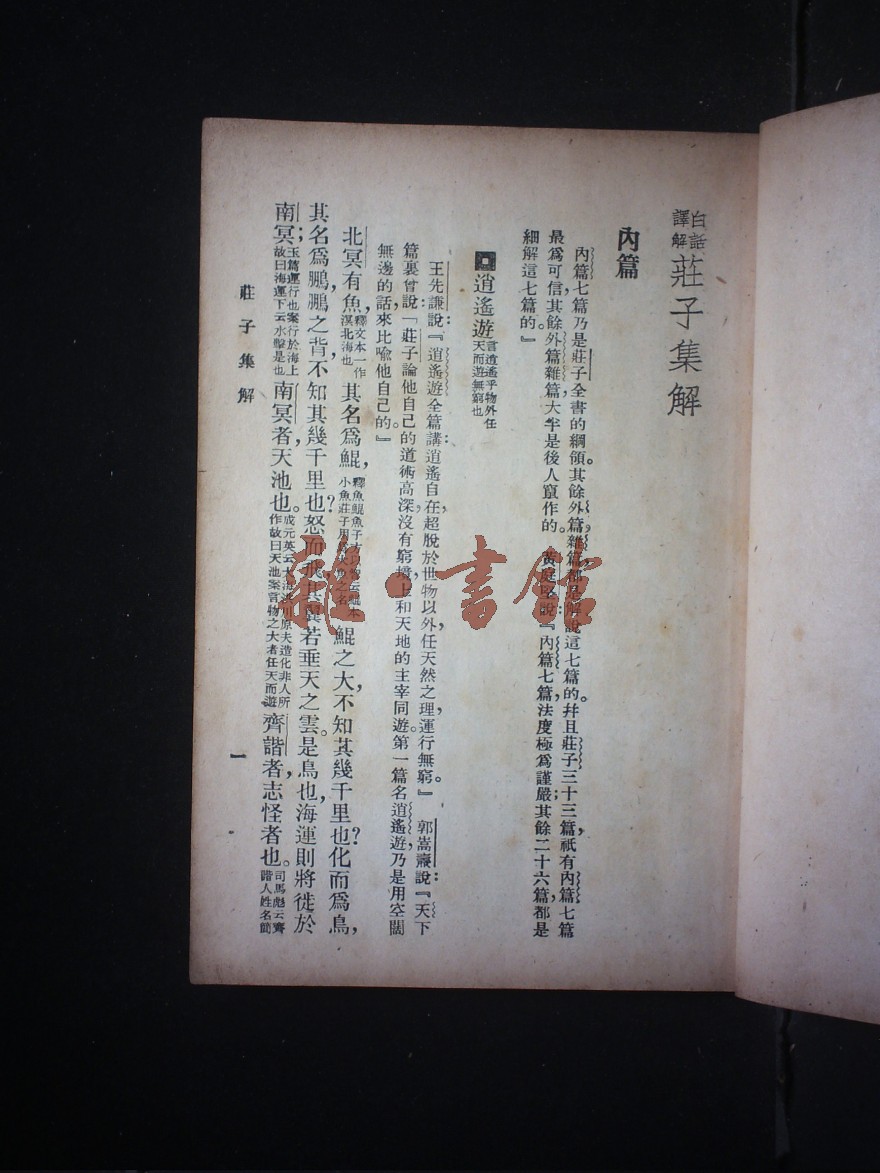 白話
譯解
莊子集解
內篇
內篇七篇乃是莊子全書的綱領。其餘外篇，雜篇，都是解說這七篇的。幷且莊子三十三篇，祇有內篇七篇
最爲可信，其餘外篇雜篇大半是後人竄作的。黃庭堅說：『內篇七篇，法度極爲謹嚴；其餘二十六篇，都是
細解這七篇的。』
逍遙遊
言逍遙乎物外任
天而遊無窮也
王先謙說：『逍遙遊全篇講逍遙自在，超脫於世物以外，任天然之理，運行無窮。』郭嵩燾說：『天下
篇裏曾說：「莊子論他自己的道術高深，沒有窮境，上和天地的主宰同遊。第一篇名逍遙遊，乃是用空闊
無邊的話，來比喻他自己的。』
北冥有魚，
釋文本一作
溟北海也
其名爲鯤，
釋魚鯤魚子方
小魚莊子用
鯤之大，不知其幾千里也？化而爲鳥，
其名爲鵬，鵬之背，不知其幾千里也？怒而飛，其翼若垂天之雲。是鳥也，海運則將徙於
南冥；
玉篇運行也案行於海上
故曰海運下云水擊是也
南冥者，天池也。
成元英云大海洪川原夫造化非人所
作故曰天池案言物之大者任天而遊
齊諧者，志怪者也。
司馬彪云齊
諧人姓名簡
莊子集解
一
雜·書館